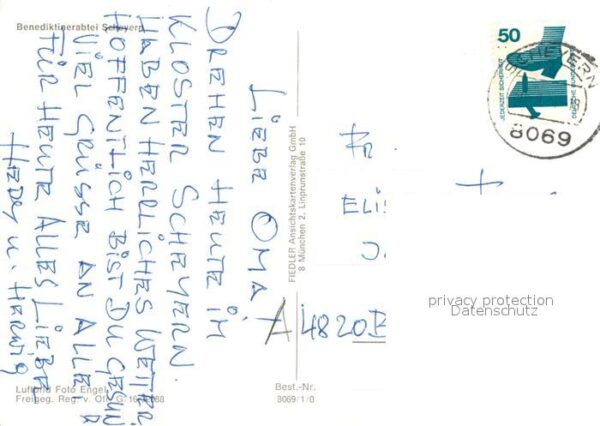 Benediktinerabtei Scheyern
LIEBE OMA!
DREHEN HEUTE IM
KLOSTER SCHEYERN.
HABEN HERRLICHES WETTER.
HOFFENTLICH BIST DU GESUN
VIEL GRÜSSE AN ALLE.
FÜR HEUTE ALLES LIEBE
HEDY U. HERWIG
Luftbild Foto Engel
Freigeg. Reg. v. Ofr.
FIEDLER Ansichtskartenverlag GmbH
8 München 2, Linprunstraße 10
Best.-Nr.
8069/1/0
50
JEDERZEIT SICHERHEIT
DEUTSCHE BUNDESPOST
8069
Fr.
ELI
J.
A 4820 B
privacy protection
Datenschutz